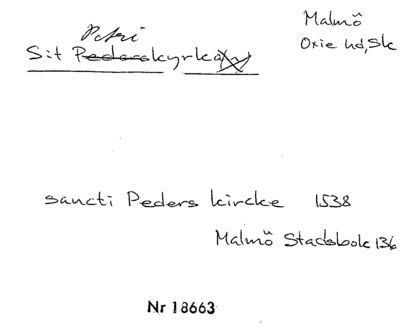 Malmö
Oxie hd, Sk
Petri
S:t Peders kyrka(n)
sancti Peders kircke 1538
Malmö Stadsbok 136
Nr 18663